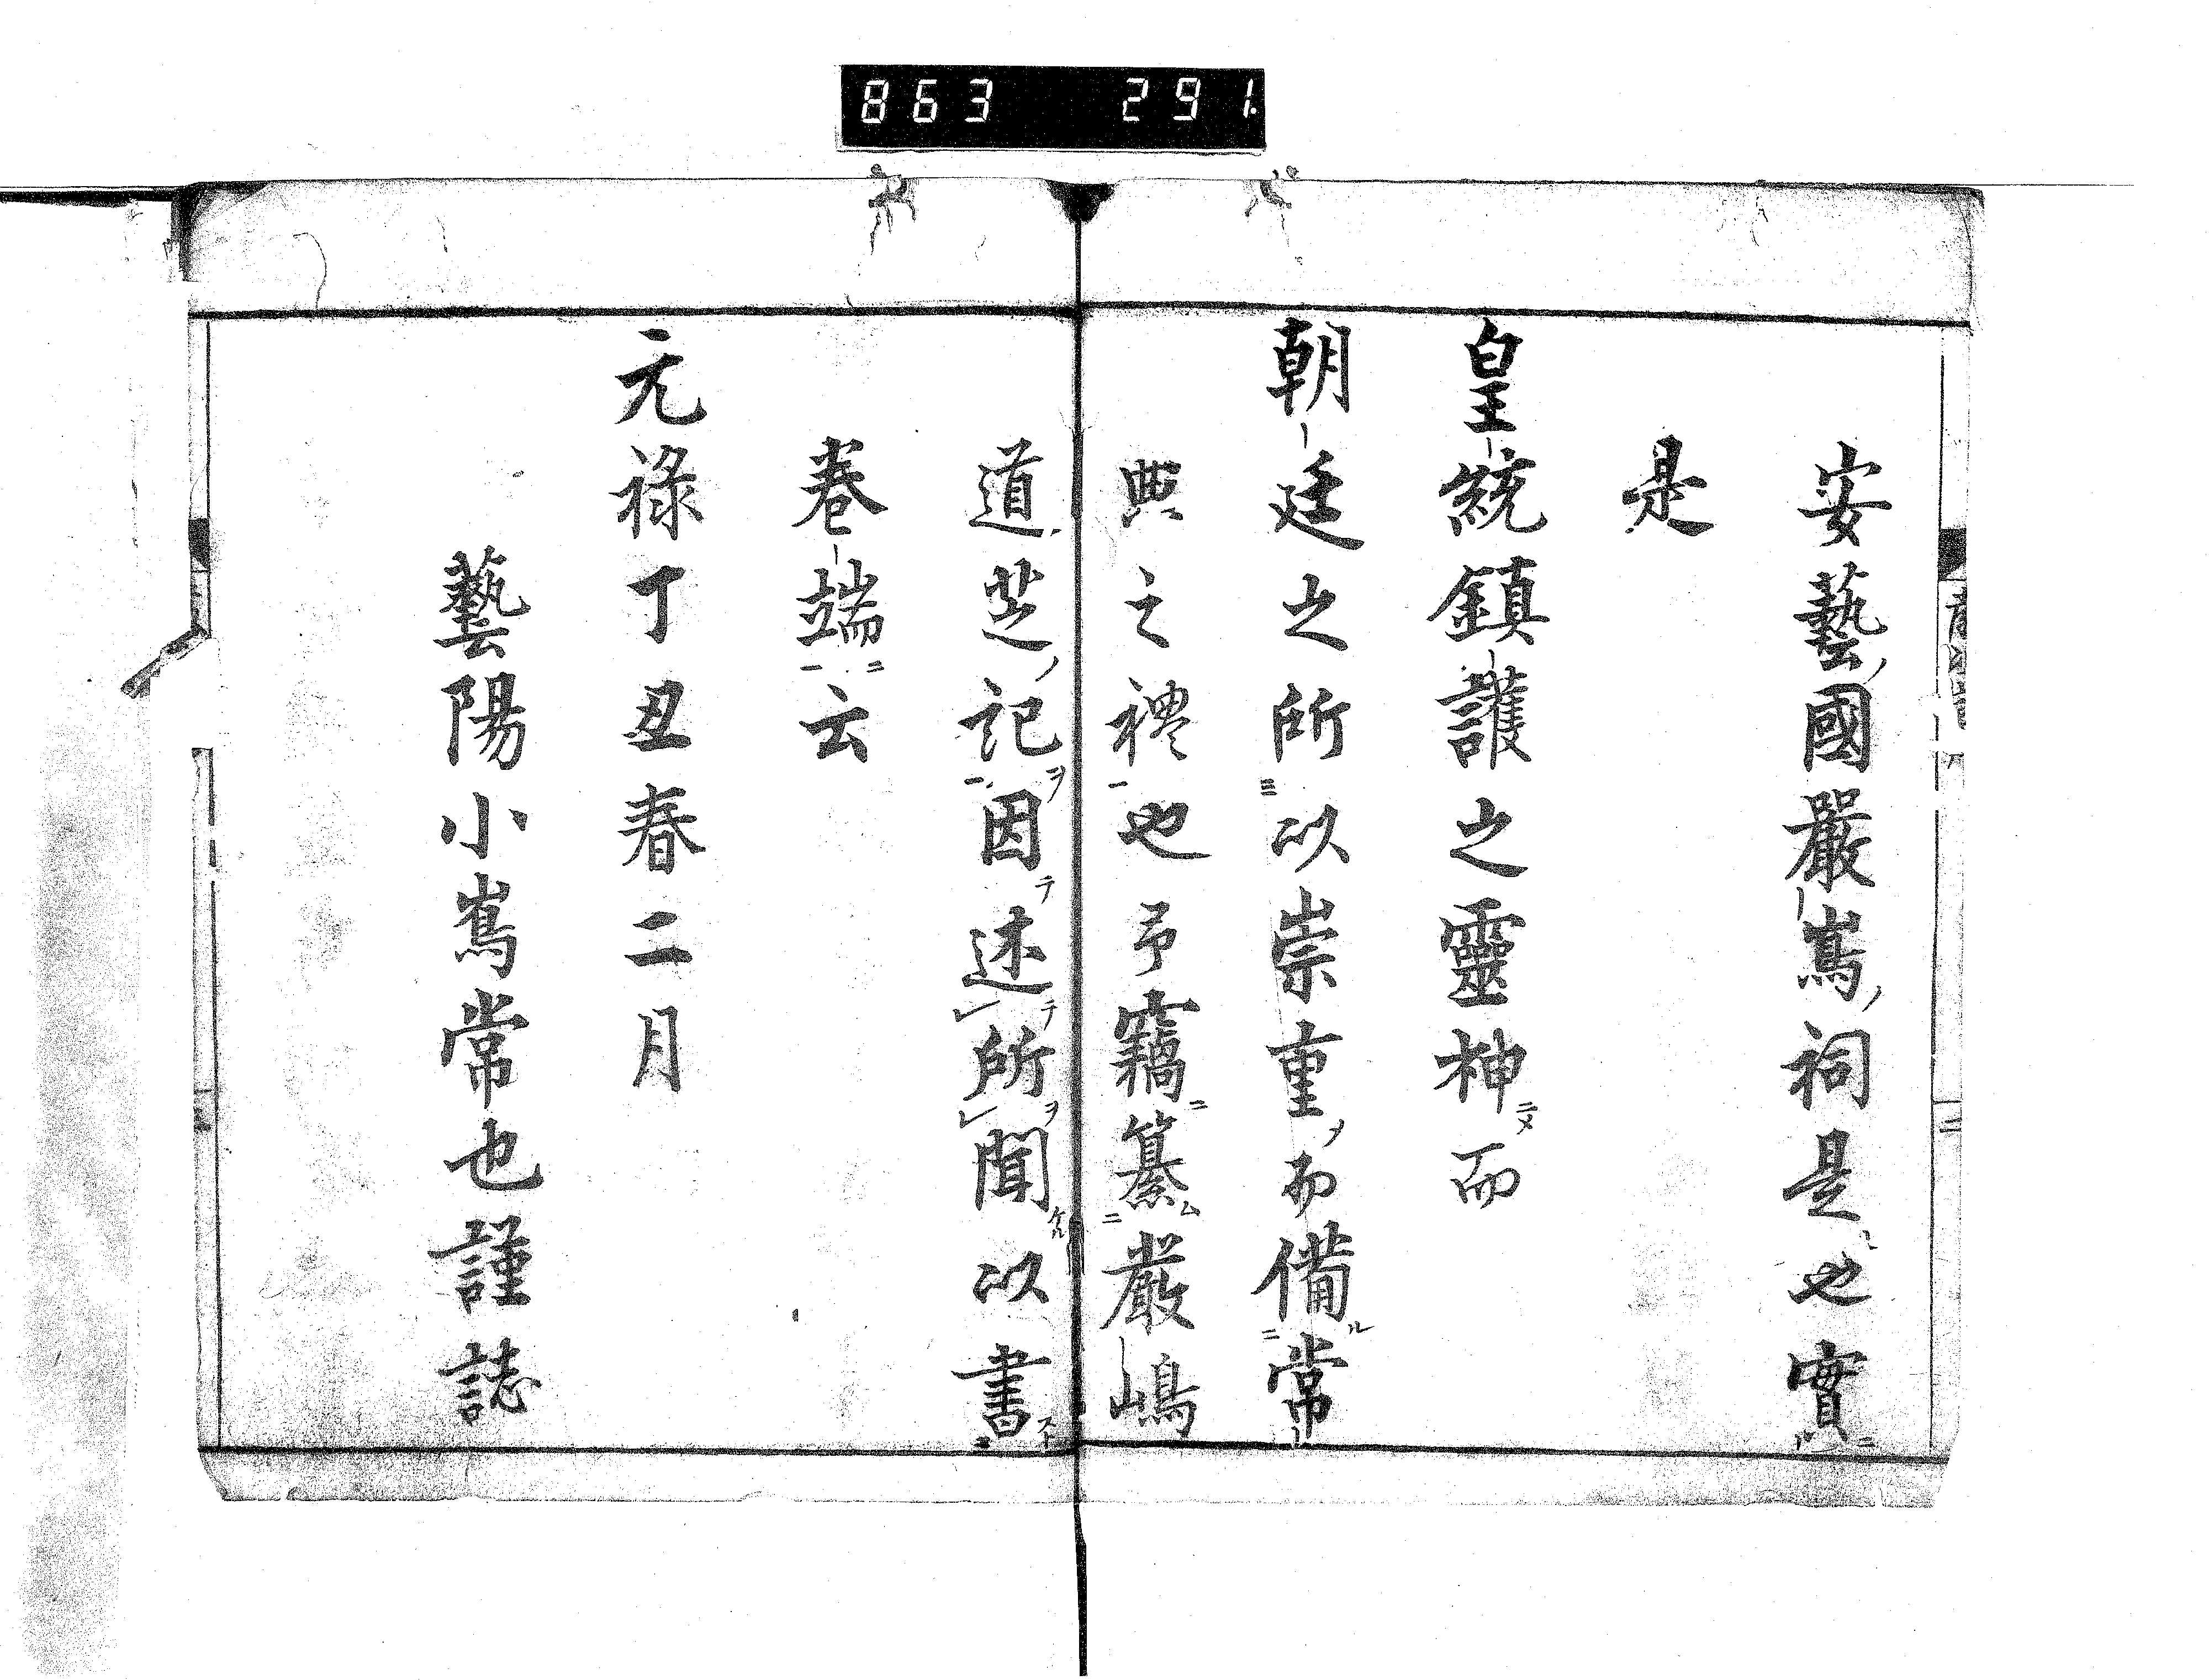 863 291
安藝國嚴嶌祠是也實
是
皇統鎮護之靈神而
朝廷之所以崇重而備常
典之禮也予竊纂嚴嶋
道芝記因述所聞以書
卷端云
元禄丁丑春二月
藝陽小嶌常也謹誌